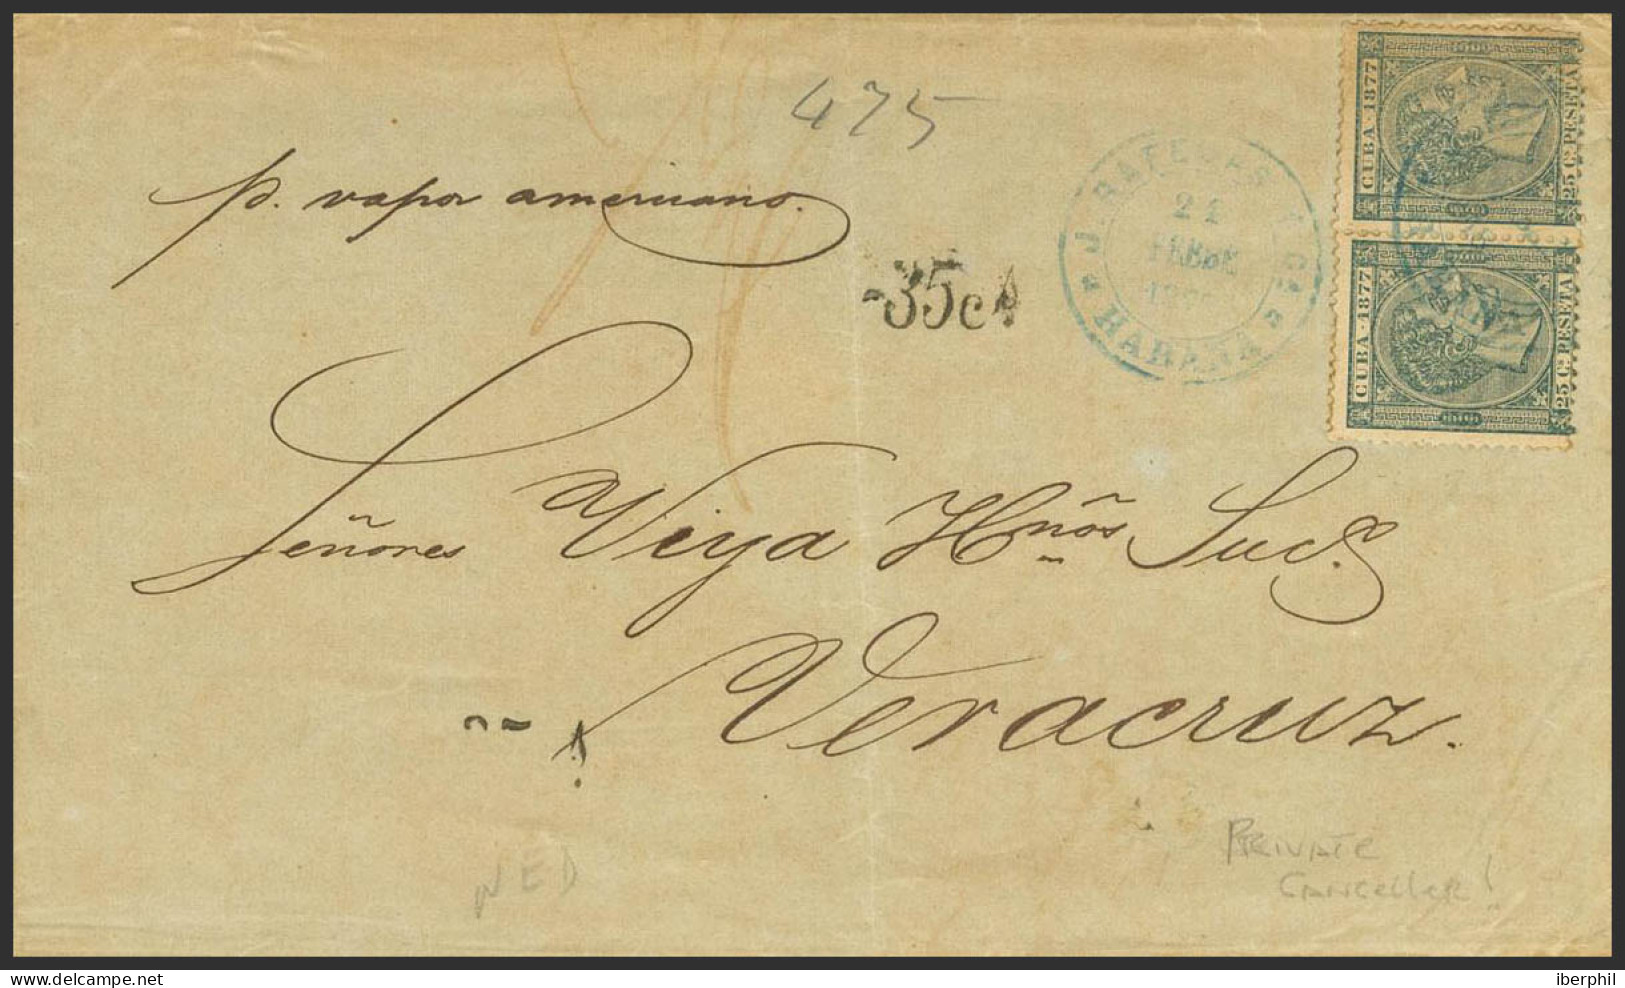 475
p. vapor americano.
35cs
J. RAFECAS Y Cª
21
HABANA
CUBA · 1877
25 C. PESETA
CUBA · 1877
25 C. PESETA
Señores Viya Hnos Sucs.
Veracruz.
NED
PRIVATE
CANCELLER!
iberphil